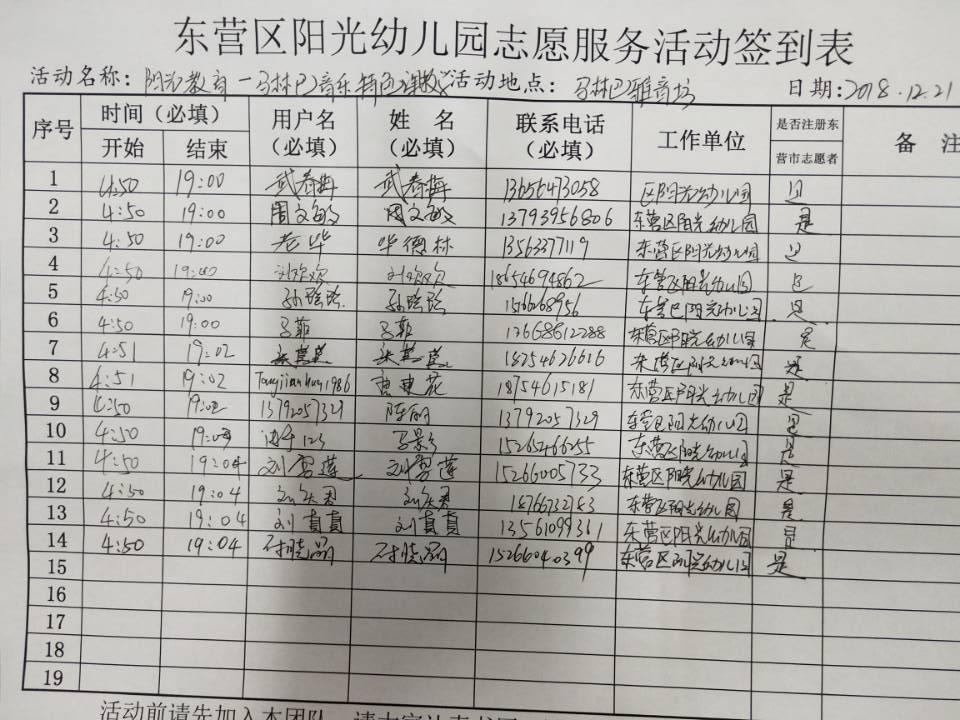 东营区阳光幼儿园志愿服务活动签到表
活动名称：阳光教育－马林巴音乐特色 活动地点：马林巴雅音坊 日期：2018.12.21
序号 时间（必填） 用户名（必填） 姓名（必填） 联系电话（必填） 工作单位 是否注册东营市志愿者 备注
开始 结束
1 4:50 19:00 武春梅 武春梅 13656473058 区阳光幼儿园 是
2 4:50 19:00 周文敏 周文敏 13793956806 东营区阳光幼儿园 是
3 4:50 19:00 老毕 毕德林 13563377119 东营区阳光幼儿园 是
4 4:50 19:00 刘欢欢 刘欢欢 18654694862 东营区阳光幼儿园 是
5 4:50 19:00 孙晗晗 孙晗晗 东营区阳光幼儿园 是
6 4:50 19:00 马菲 马菲 13668612288 东营区阳光幼儿园 是
7 4:51 19:02 18254626616 东营区阳光幼儿园 是
8 4:51 19:02 Tangjianhua1986 唐建花 18754615181 东营区阳光幼儿园 是
9 4:50 19:02 13792057329 陈丽 13792057329 东营区阳光幼儿园 是
10 4:50 19:03 15265266255 东营区阳光幼儿园 是
11 4:50 19:04 刘雪莲 刘雪莲 15266005733 东营区阳光幼儿园 是
12 4:50 19:04 18766732783 东营区阳光幼儿园 是
13 4:50 19:04 刘真真 刘真真 13561099361 东营区阳光幼儿园 是
14 4:50 19:04 石晓丽 石晓丽 15266040399 东营区阳光幼儿园 是
15
16
17
18
19
活动前请先加入本团队，请大家认真书写